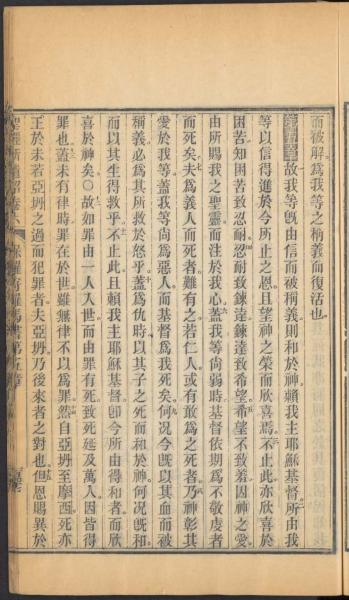 而被解爲我等之稱義而復活也
第五章故我等旣由信而被稱義則和於神賴我主耶穌基督所由我
等以信得進於今所止之恩且望神之榮而欣喜焉不止此亦欣喜於
困苦知困苦致忍耐忍耐致鍊達鍊達致希望希望不致羞因神之愛
由所賜我之聖靈而注於我心蓋我等尙弱時基督依期爲不敬虔者
而死矣夫爲義人而死者難有之若仁人或有敢爲之死者乃神彰其
愛於我等蓋我等尙爲惡人而基督爲我死矣何况今旣以其血而被
稱義必爲其所救於怒乎蓋爲仇時以其子之死而和於神何况旣和
而以其生得救乎不止此且賴我主耶穌基督卽今所由得和者而欣
喜於神矣○故如罪由一人入世而由罪有死致死延及萬人因皆得
罪也蓋未有律時罪在於世雖無律不以爲罪然自亞坍至摩西死亦
王於未若亞坍之過而犯罪者夫亞坍乃後來者之對也但恩賜異於
聖經新遺詔卷六 保羅寄羅馬書第五章